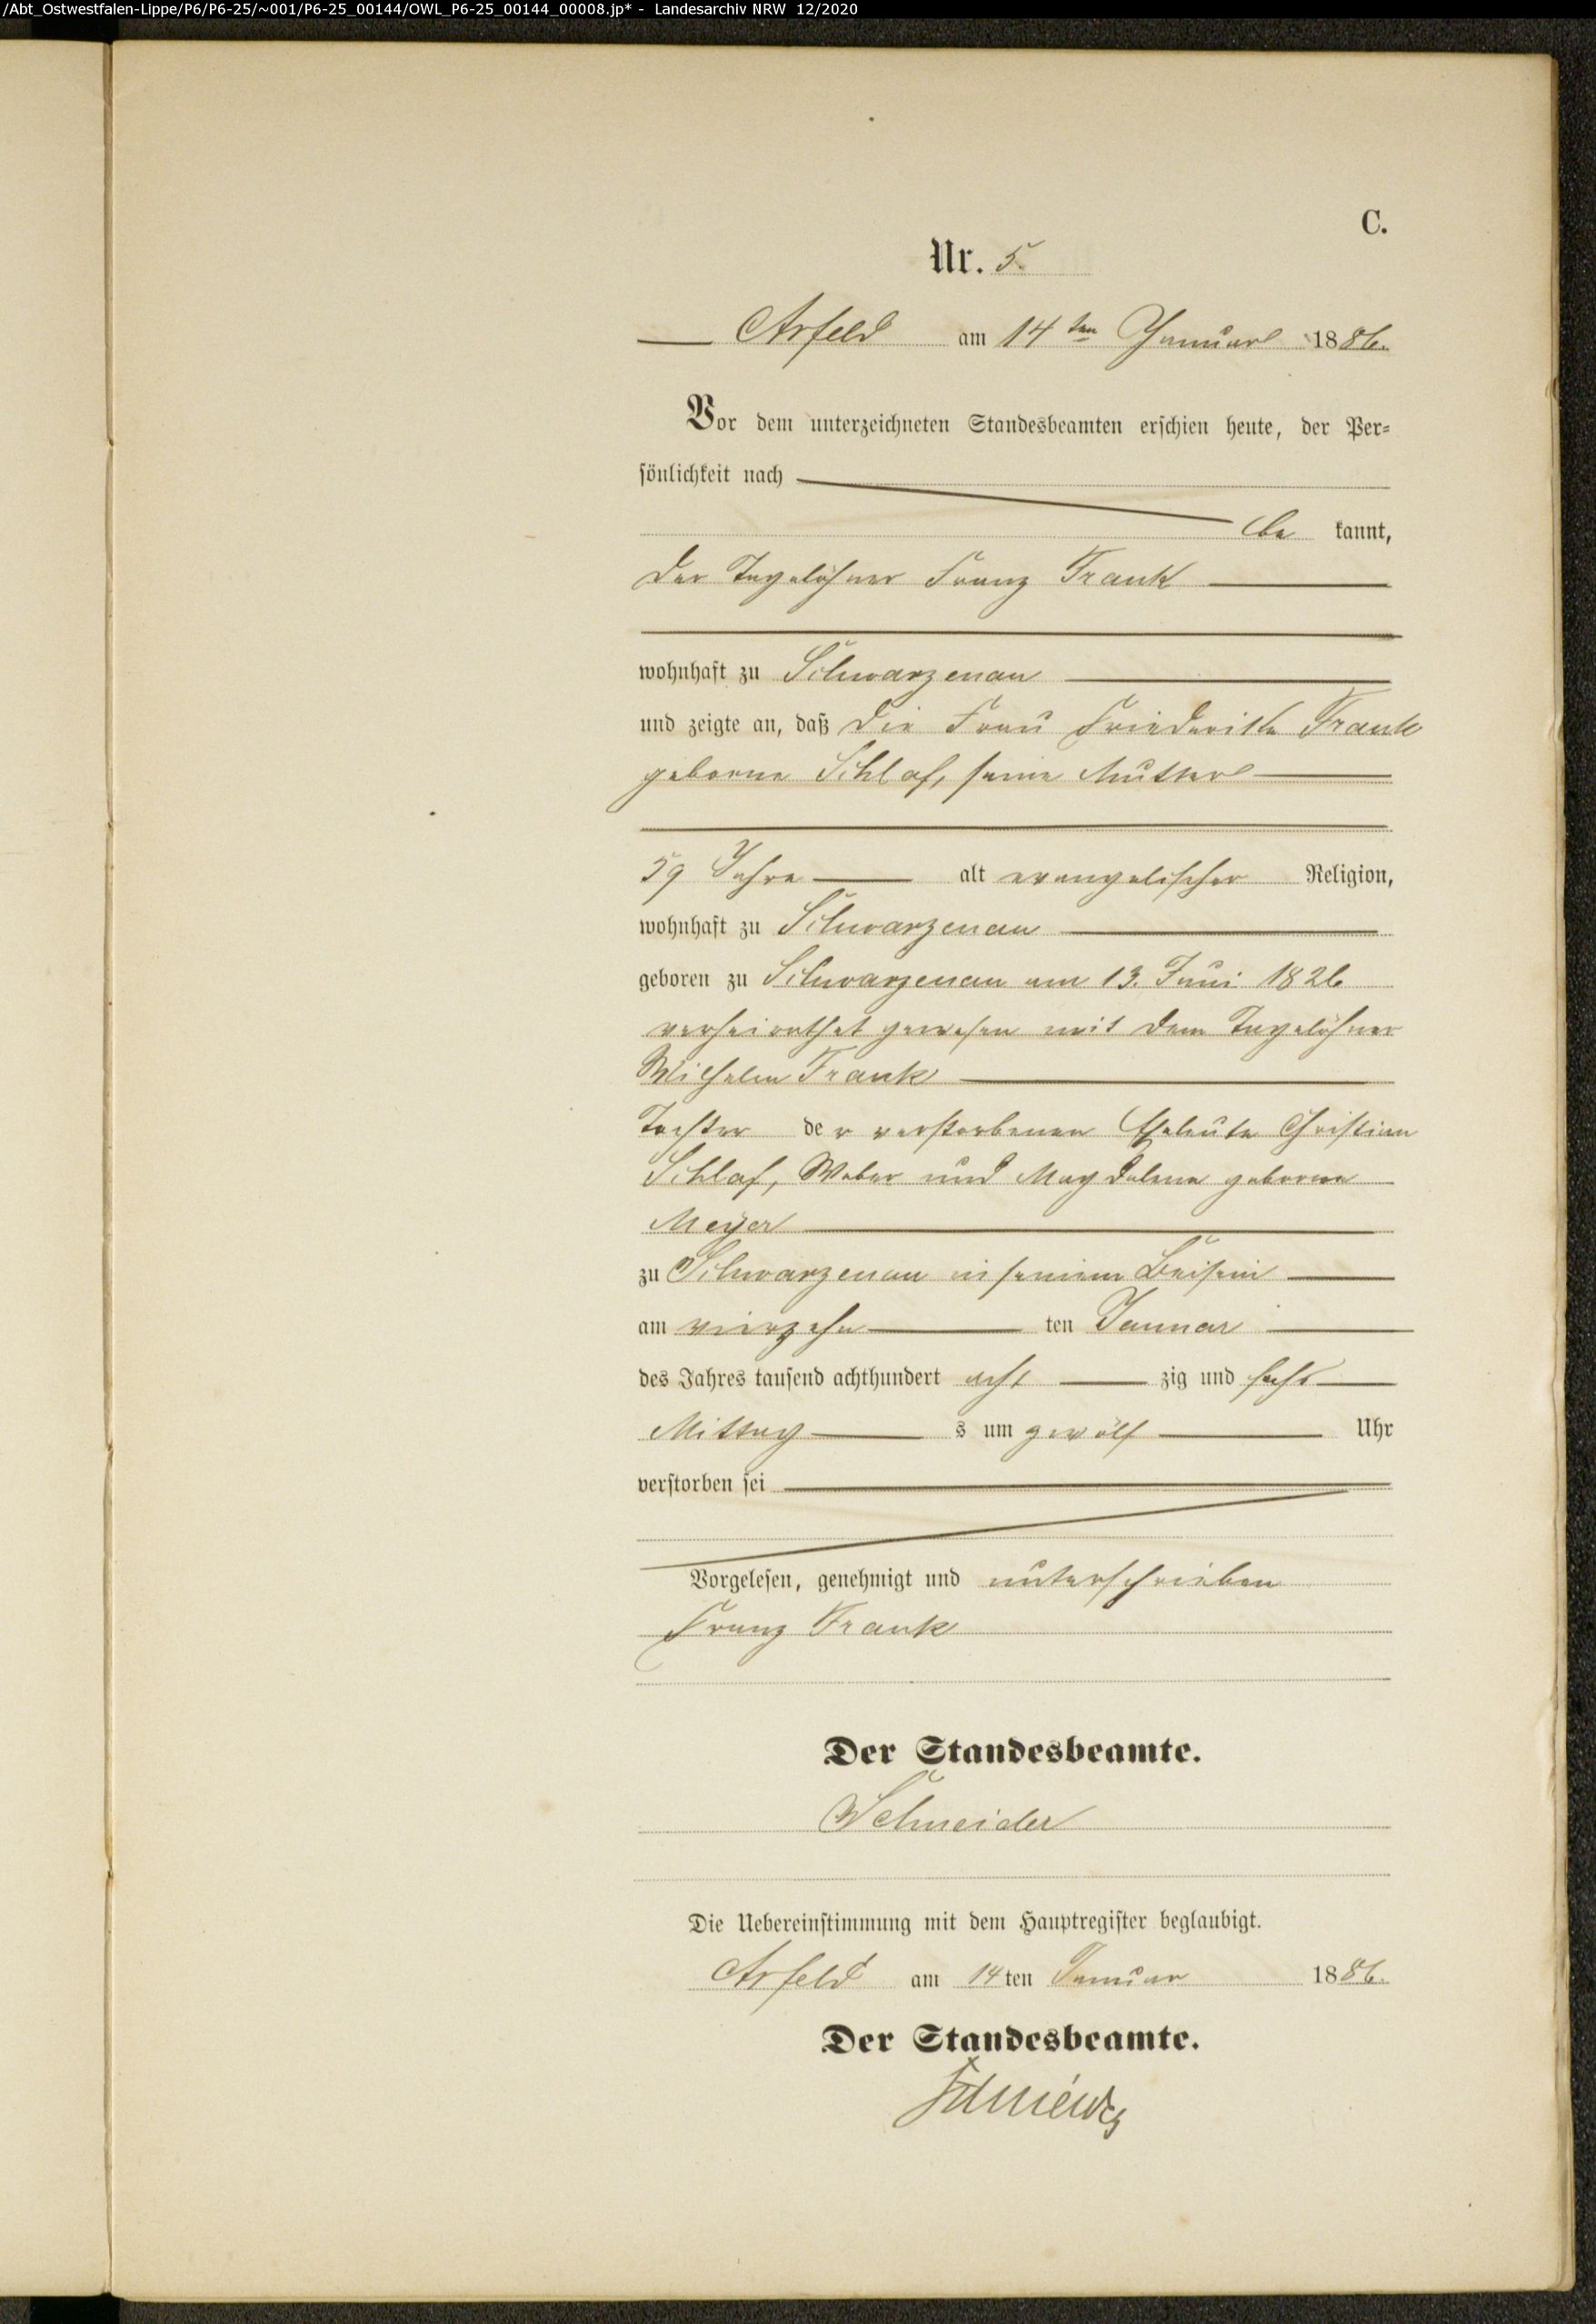 /Abt_Ostwestfalen-Lippe/P6/P6-25/~001/P6-25_00144/OWL_P6-25_00144_00008.jp* - Landesarchiv NRW 12/2020
C.
Nr. 5.
Arfeld am 14ten Januar 1886.
Vor dem unterzeichneten Standesbeamten erschien heute, der Per-
sönlichkeit nach
be kannt,
der Tagelöhner Franz Frank
wohnhaft zu Schwarzenau
und zeigte an, daß die Frau Friederike Frank
geborne Schlaf, seine Mutter
59 Jahre alt evangelischer Religion,
wohnhaft zu Schwarzenau
geboren zu Schwarzenau am 13. Juni 1826
verheirathet gewesen mit dem Tagelöhner
Wilhelm Frank
Tochter der verstorbenen Eheleute Christian
Schlaf, Weber und Magdalena geborene
Meyer
zu Schwarzenau in seinem Beisein
am vierzehn ten Januar
des Jahres tausend achthundert acht zig und sechs
Mittag s um zwölf Uhr
verstorben sei
Vorgelesen, genehmigt und unterschrieben
Franz Frank
Der Standesbeamte.
Schneider
Die Uebereinstimmung mit dem Hauptregister beglaubigt.
Arfeld am 14ten Januar 1886.
Der Standesbeamte.
Schneider